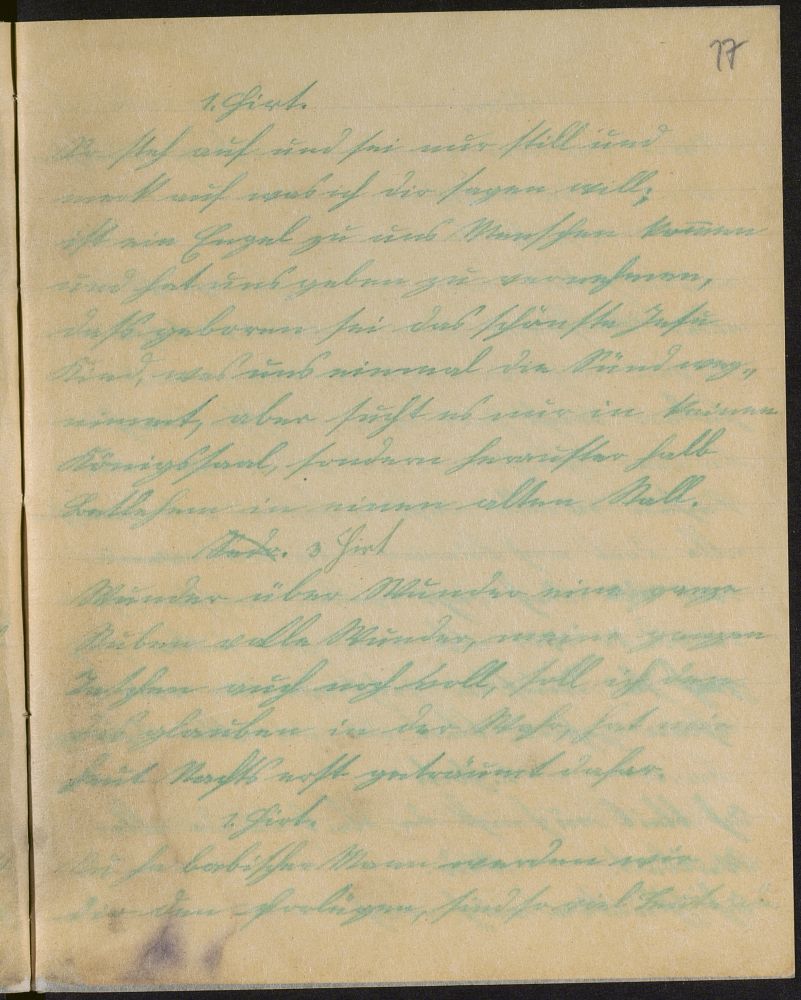 17
1. Hirt.
So steh auf und sei nur still und
merk auf was ich dir sagen will;
ist ein Engel zu uns Menschen kommen
und hat uns geben zu vernehmen,
dass geboren sei das schönste Jesu
Kind, was uns einmal die Sünd weg-
nimmt, aber sucht es nur in keinem
Königssaal, sondern herunter halb
Betlehem in einem alten Stall.
3 Hirt
Wunder über Wunder eine ganze
Stuben volle Wunder, meine ganzen
Taschen auch noch voll, soll ich den
das glauben in der Wahr, hat mir
heut Nachts erst geträumt daher.
1. Hirt.
Du Mann werden wir
dir den sind so viel Leute